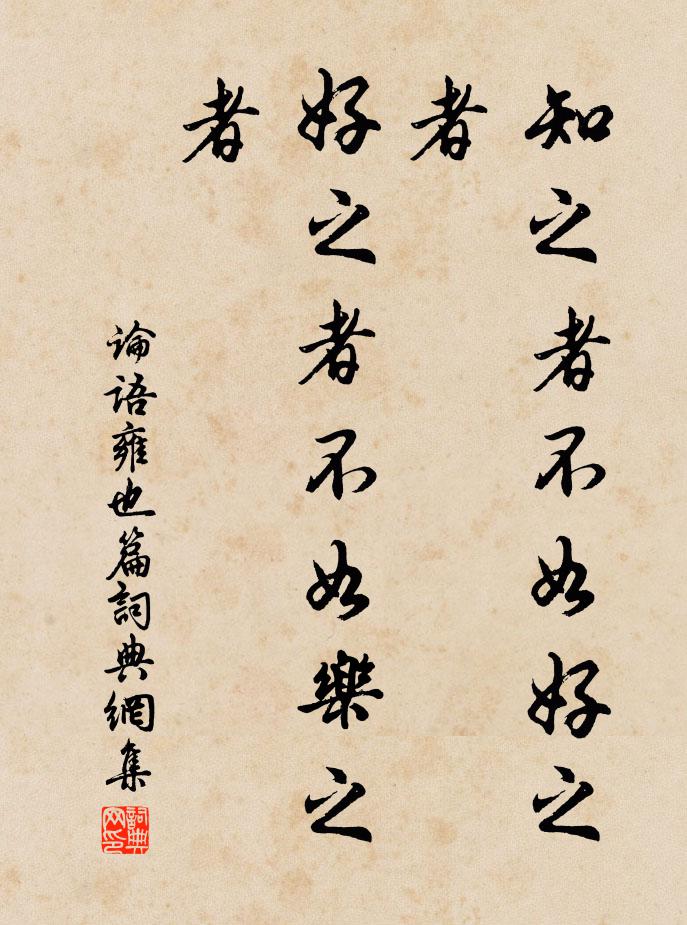 知之者不如好之
者
好之者不如樂之
者
论语雍也篇詞典網集
詞典网印